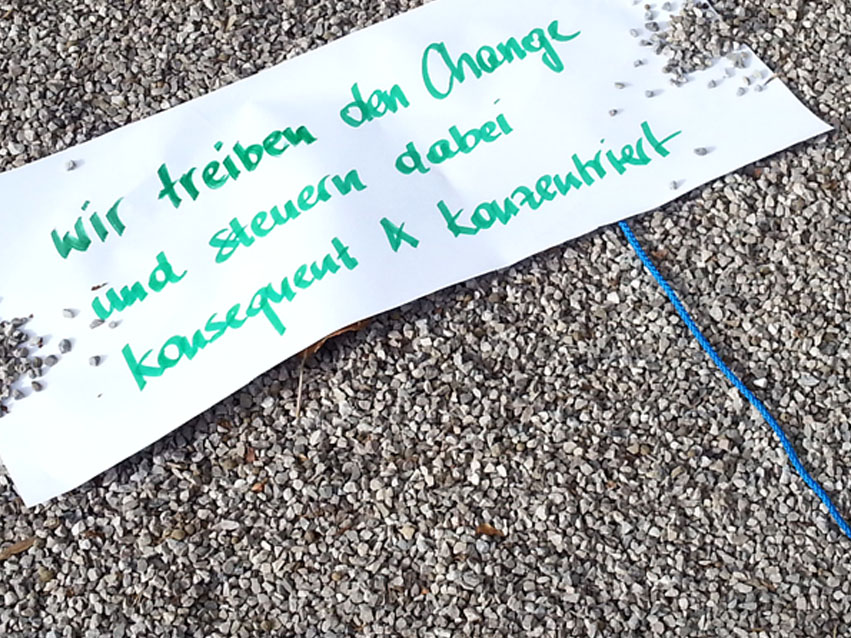 Wir treiben den Change
und steuern dabei
konsequent & konzentriert